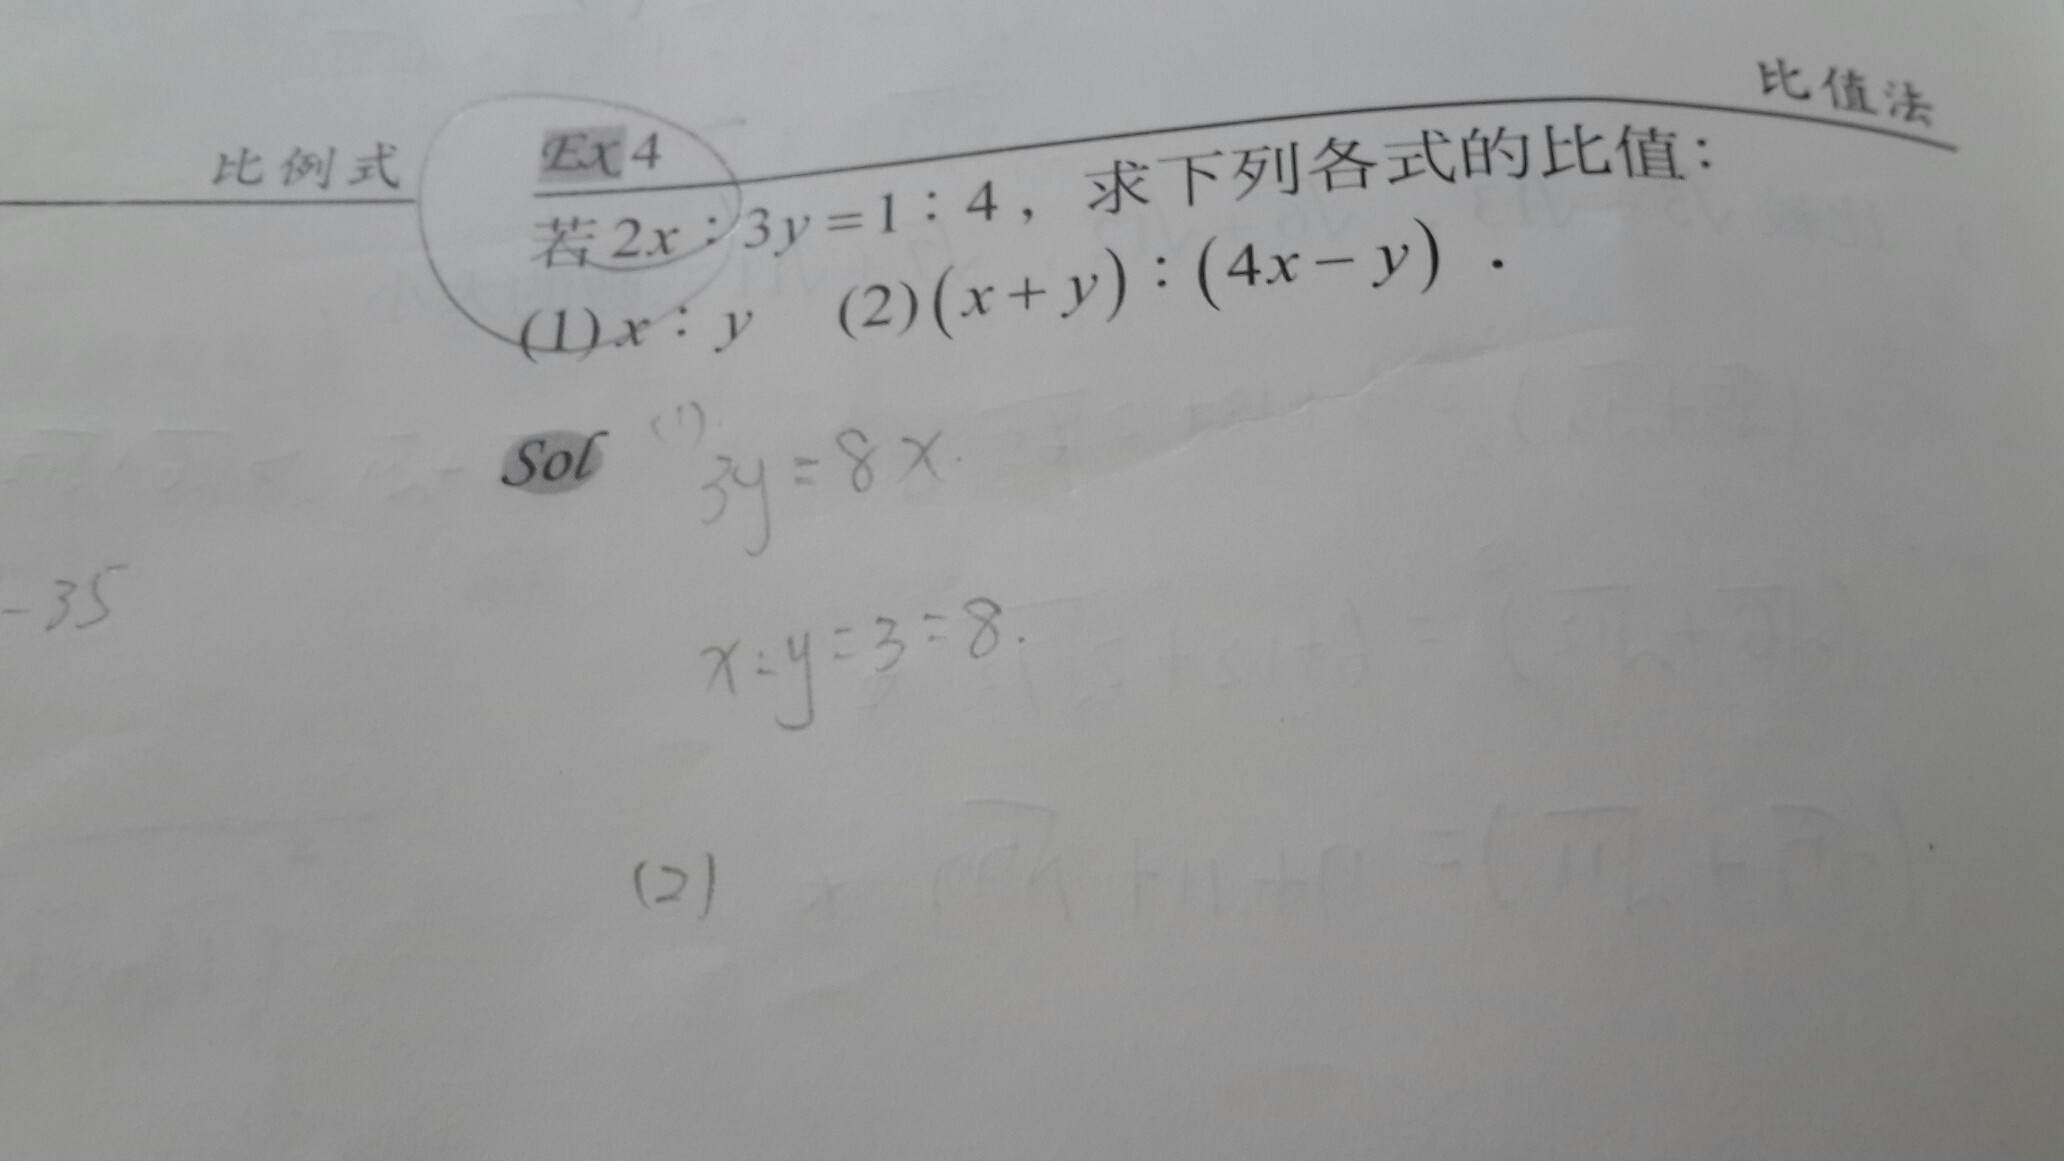 比值法
比例式
Ex 4
若 2x：3y=1：4，求下列各式的比值：
(1) x：y (2)(x+y)：(4x−y)．
Sol (1).
3y=8x.
x:y=3=8.
-35
(2)